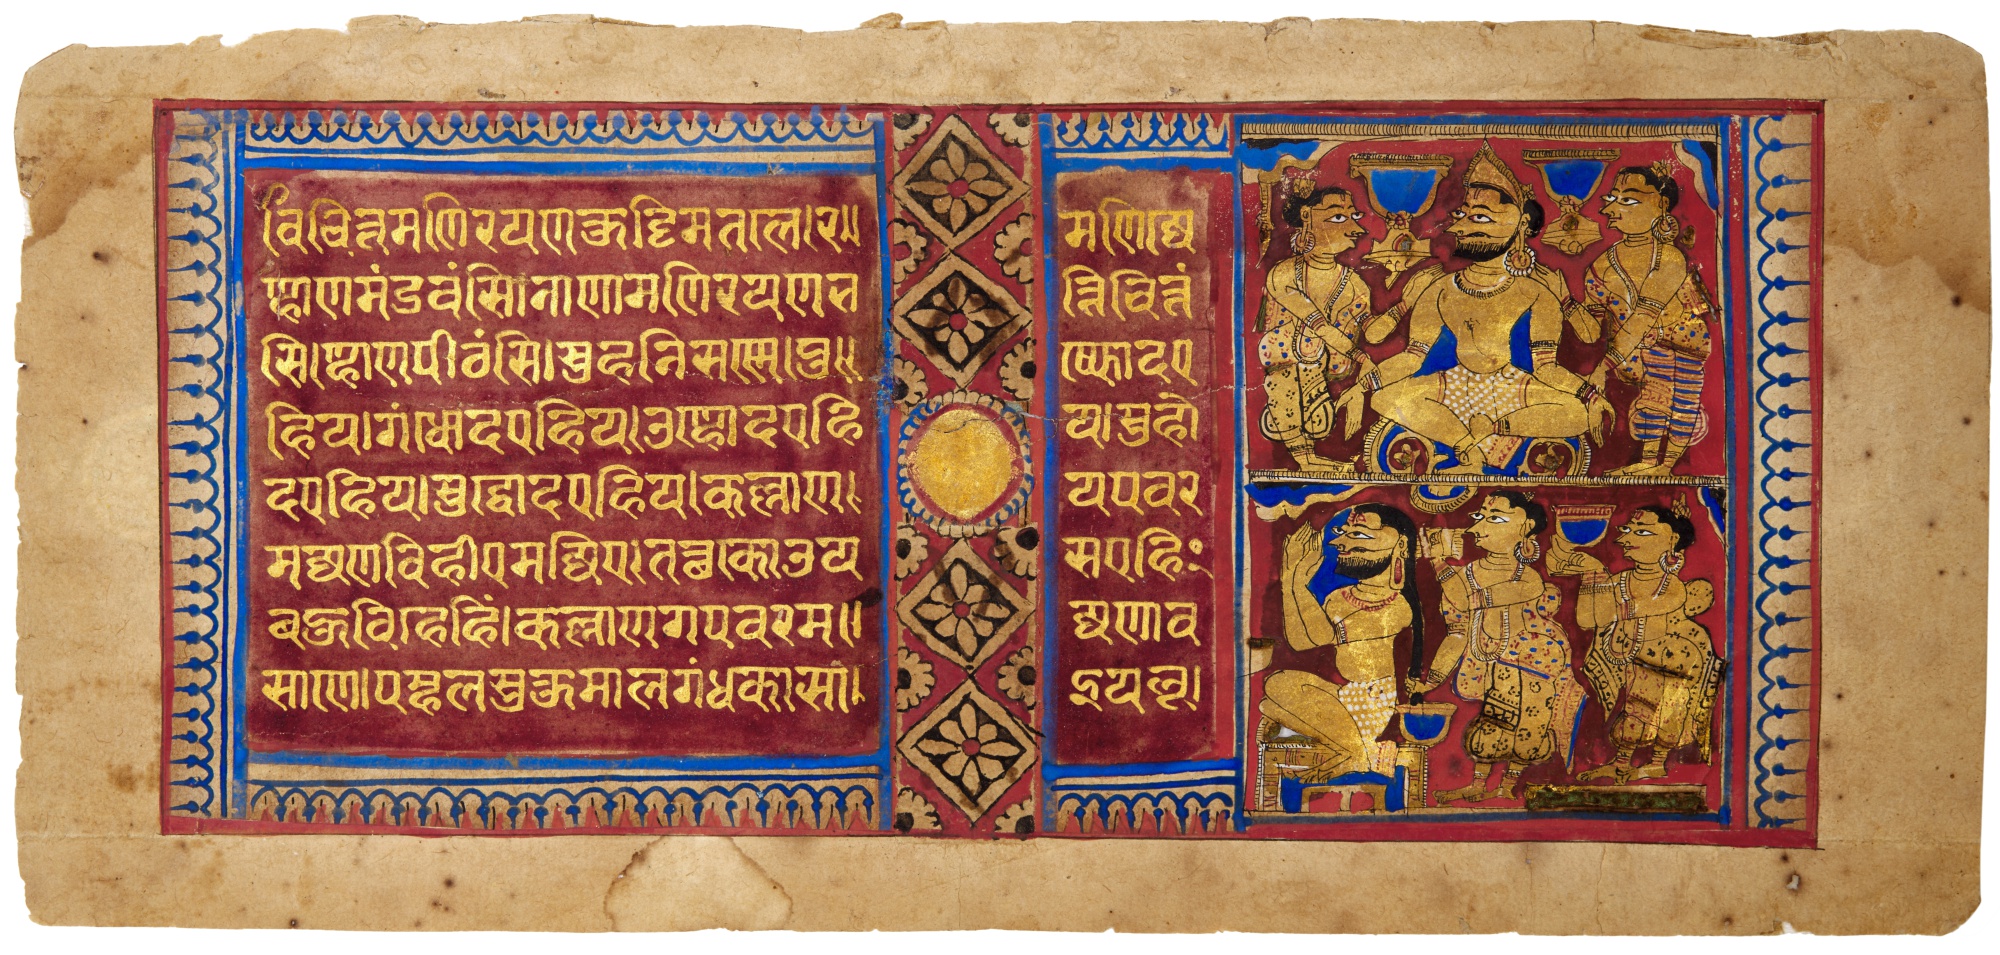 विचित्तमणिरयणकुट्टिमतले र॥ मणिज्जे
ण्हाणमंडवंसि नाणामणिरयणभ त्तिचित्तं
सि ण्हाणपीढंसि सुहनिसन्ने पु॥ प्फोदए
हि य गंधोदएहि य उण्होदएहि य सुहो
दएहि य सुद्धोदएहि य कल्लाण। यपवर
मज्जणविहीए मज्जिए तत्थ कोउय सएहिं
बहुविहेहिं कल्लाणगपवरम॥ ज्जणाव
साणे पम्हलसुकुमालगंधकासा। इयलू।